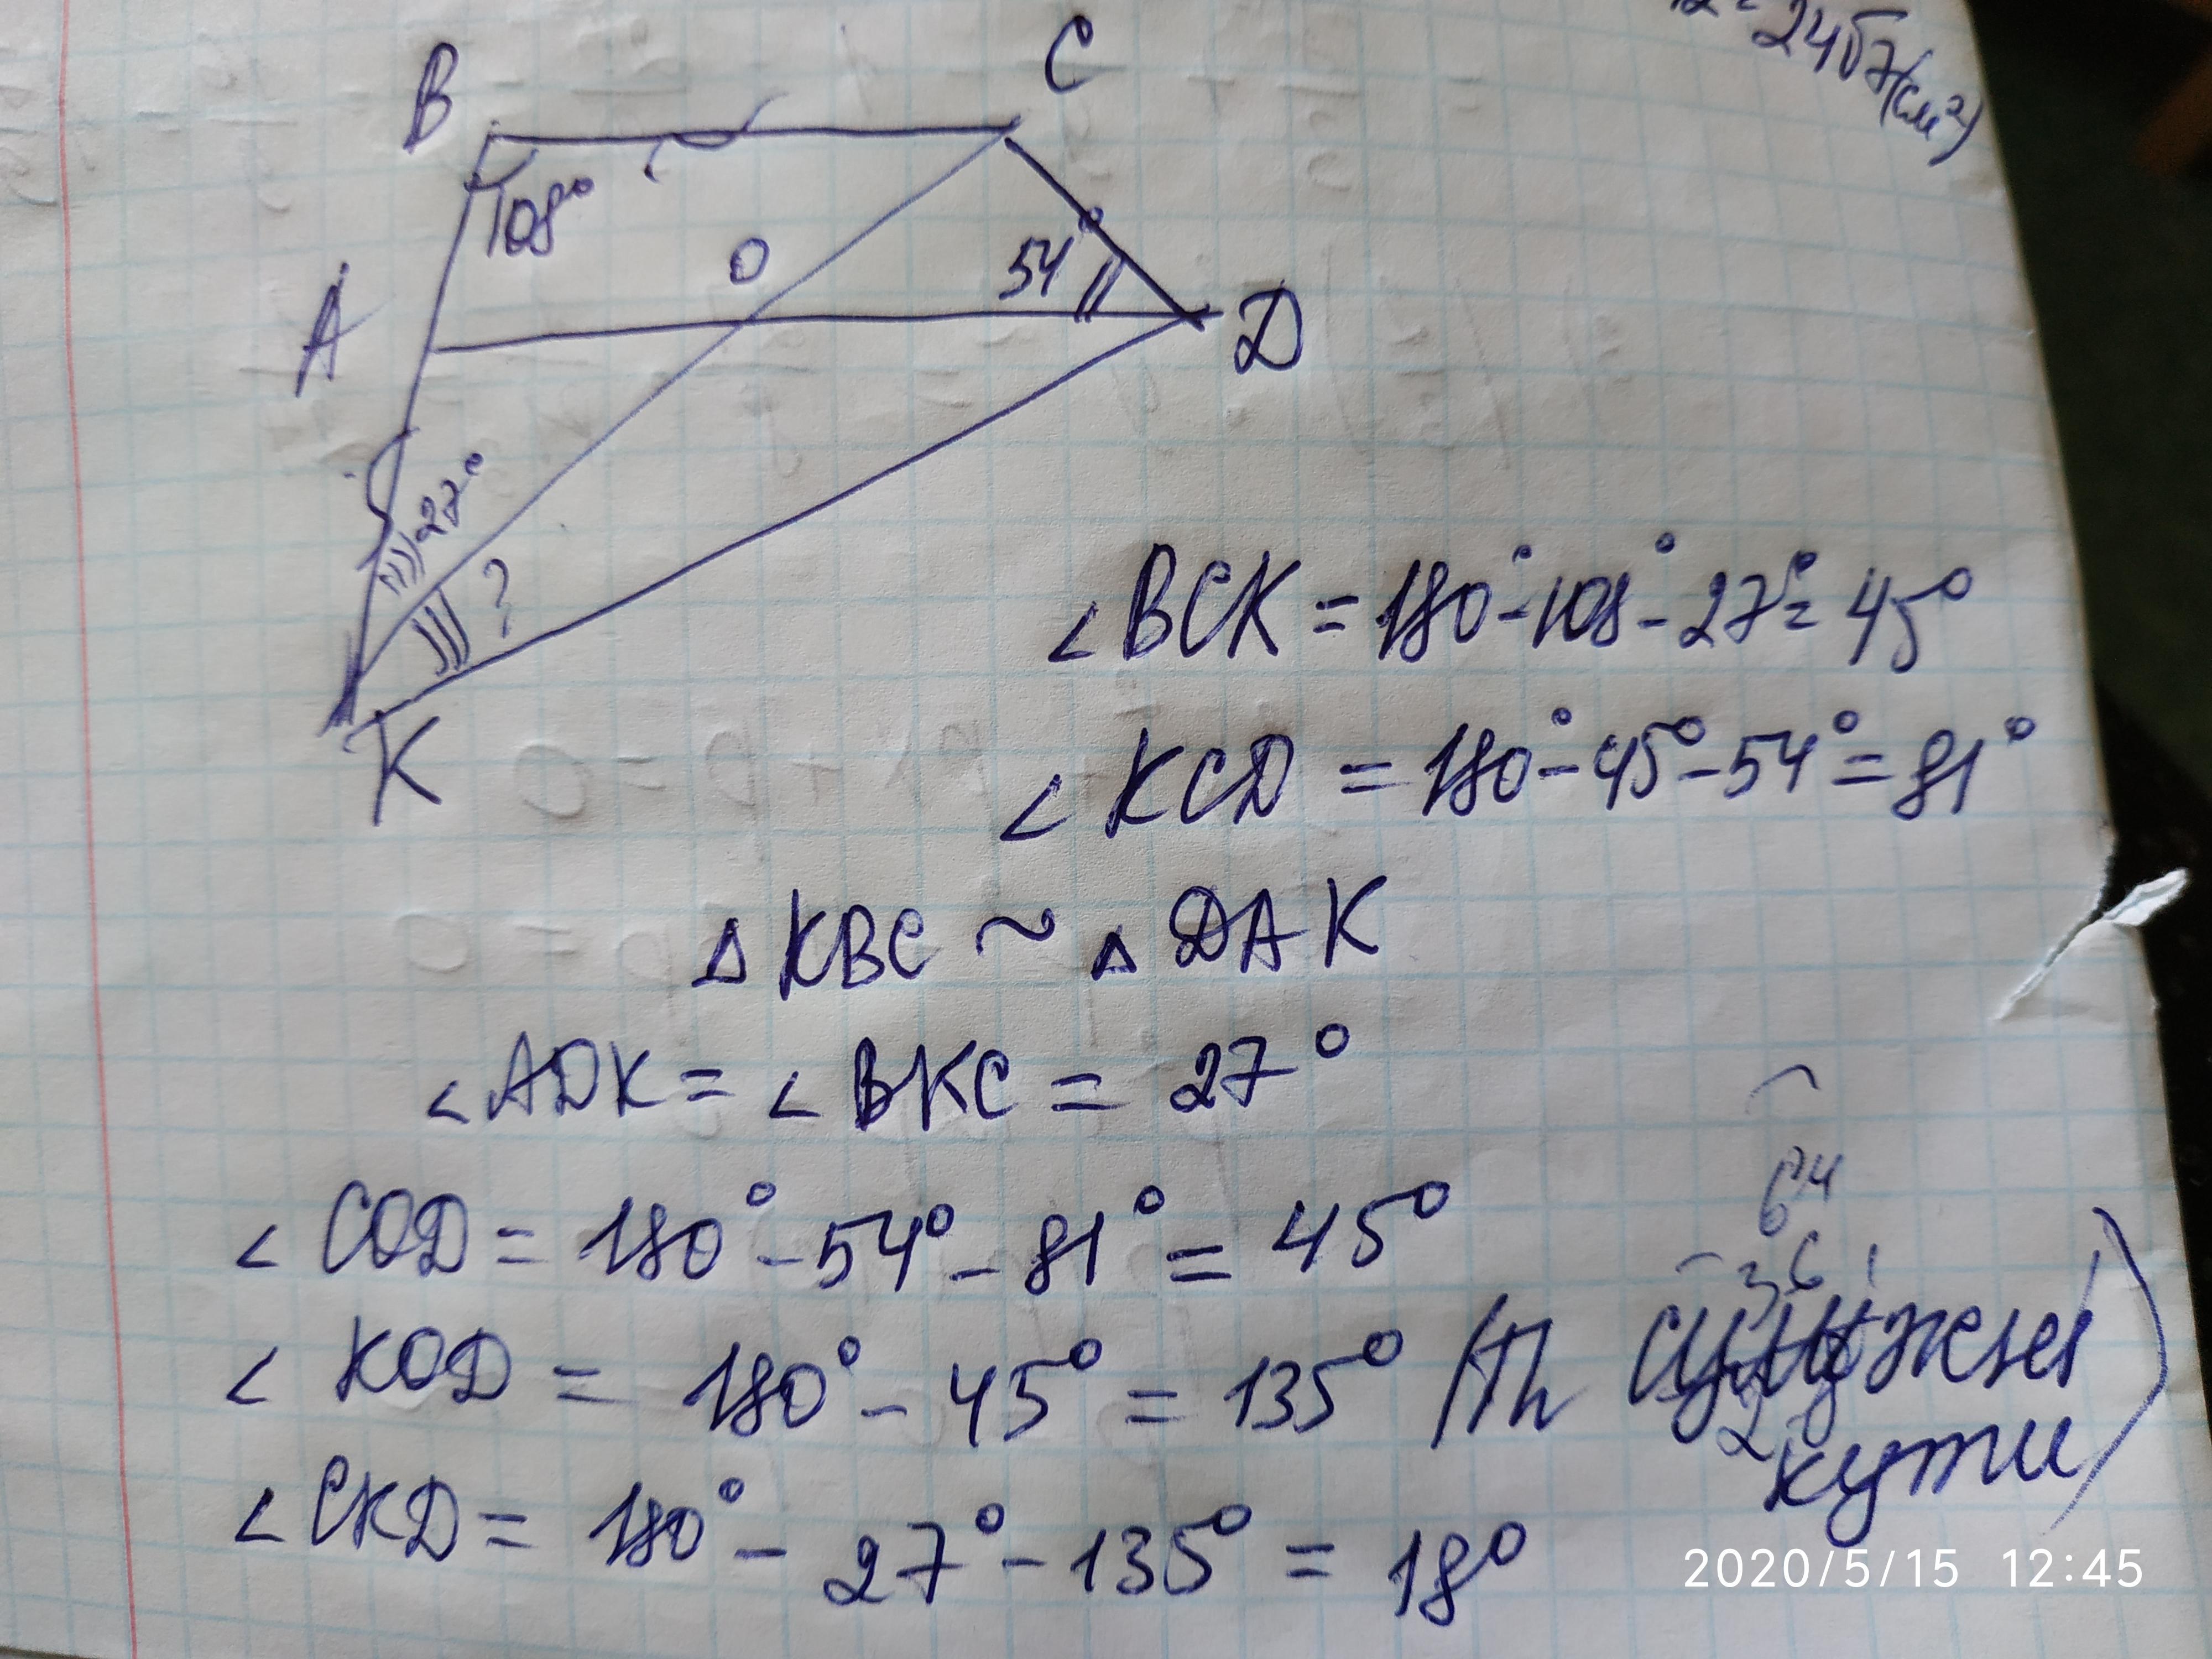 24√7(см²)
B
C
108°
O
54°
A
D
27°
?
K
∠BCK = 180° - 108° - 27° = 45°
∠KCD = 180° - 45° - 54° = 81°
△KBC ~ △DAK
∠ADK = ∠BKC = 27°
64
∠COD = 180° - 54° - 81° = 45°
36
∠KOD = 180° - 45° = 135° (як суміжні
кути)
∠CKD = 180° - 27° - 135° = 18°
2020/5/15 12:45